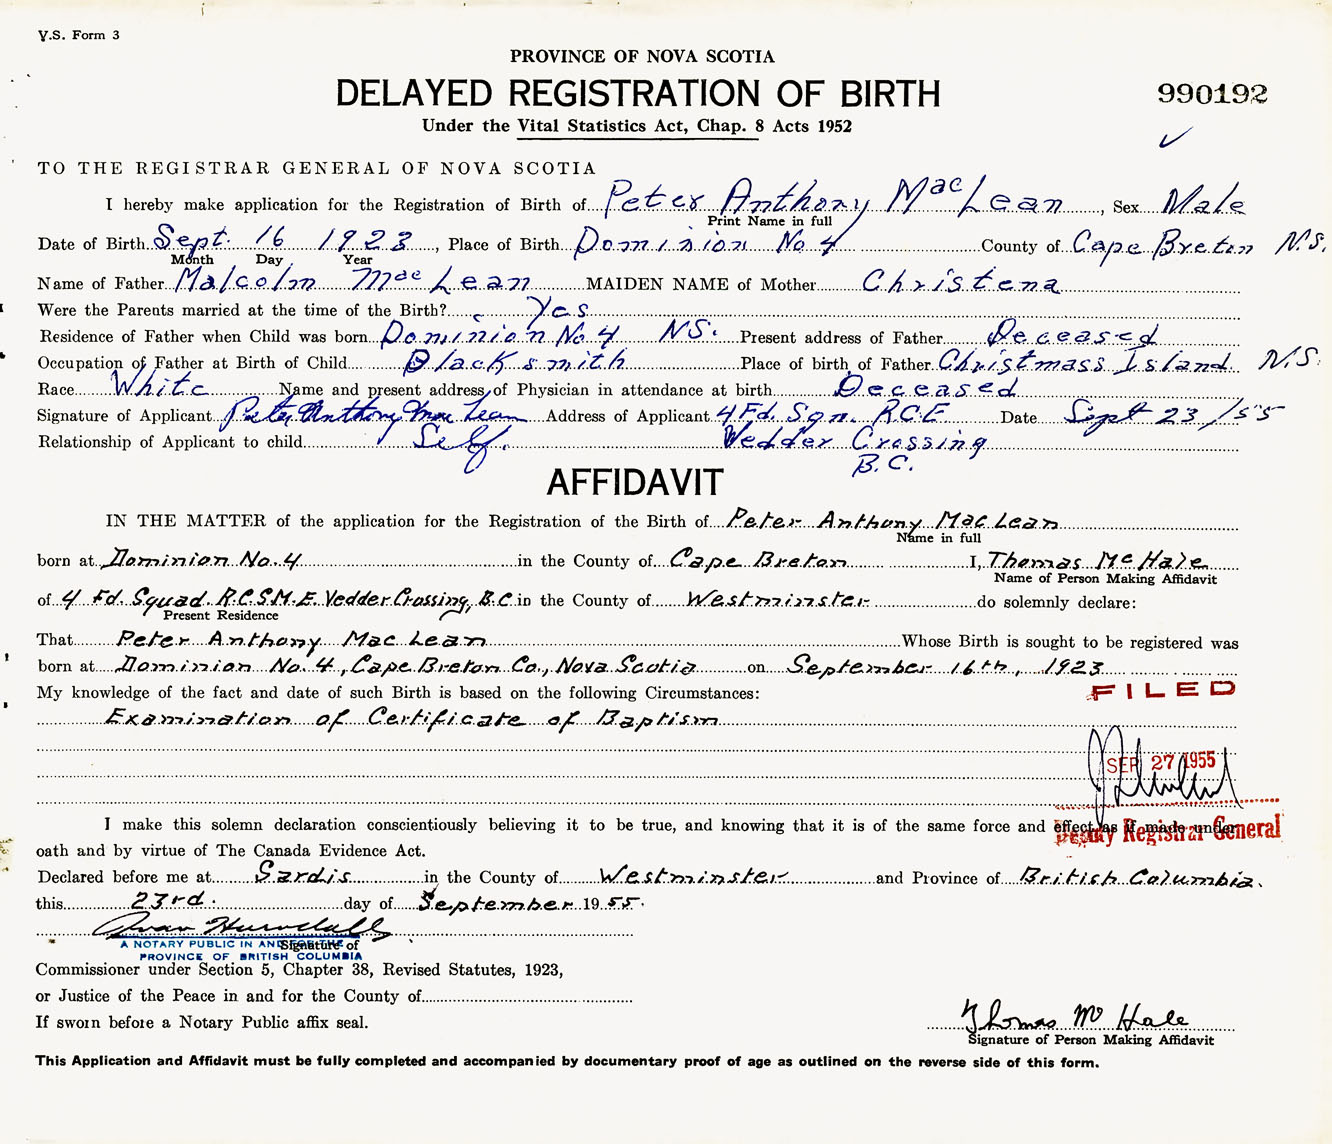 V.S. Form 3
PROVINCE OF NOVA SCOTIA
DELAYED REGISTRATION OF BIRTH
990192
Under the Vital Statistics Act, Chap. 8 Acts 1952
TO THE REGISTRAR GENERAL OF NOVA SCOTIA
I hereby make application for the Registration of Birth of Peter Anthony MacLean, Sex Male
Print Name in full
Date of Birth Sept. 16 1923, Place of Birth Dominion No 4 County of Cape Breton N.S.
Month Day Year
Name of Father Malcolm MacLean MAIDEN NAME of Mother Christena
Were the Parents married at the time of the Birth? Yes
Residence of Father when Child was born Dominion No 4 NS. Present address of Father Deceased
Occupation of Father at Birth of Child Blacksmith Place of birth of Father Christmass Island N.S.
Race White Name and present address of Physician in attendance at birth Deceased
Signature of Applicant Peter Anthony MacLean Address of Applicant 4 Fd. Sqn. R.C.E Date Sept 23/55
Relationship of Applicant to child Self. Vedder Crossing
B.C.
AFFIDAVIT
IN THE MATTER of the application for the Registration of the Birth of Peter Anthony MacLean
Name in full
born at Dominion No. 4 in the County of Cape Breton I, Thomas McHale
Name of Person Making Affidavit
of 4 Fd. Squad. R.C.S.M.E. Vedder Crossing, B.C. in the County of Westminster do solemnly declare:
Present Residence
That Peter Anthony MacLean Whose Birth is sought to be registered was
born at Dominion No. 4, Cape Breton Co., Nova Scotia on September 16th, 1923
My knowledge of the fact and date of such Birth is based on the following Circumstances:
FILED
Examination of Certificate of Baptism
SEP 27 1955
I make this solemn declaration conscientiously believing it to be true, and knowing that it is of the same force and effect as if made under
Deputy Registrar General
oath and by virtue of The Canada Evidence Act.
Declared before me at Sardis in the County of Westminster and Province of British Columbia.
this 23rd. day of September 1955.
A NOTARY PUBLIC IN AND FOR THE
Signature of
PROVINCE OF BRITISH COLUMBIA
Commissioner under Section 5, Chapter 38, Revised Statutes, 1923,
or Justice of the Peace in and for the County of
If sworn before a Notary Public affix seal.
Thomas McHale
Signature of Person Making Affidavit
This Application and Affidavit must be fully completed and accompanied by documentary proof of age as outlined on the reverse side of this form.